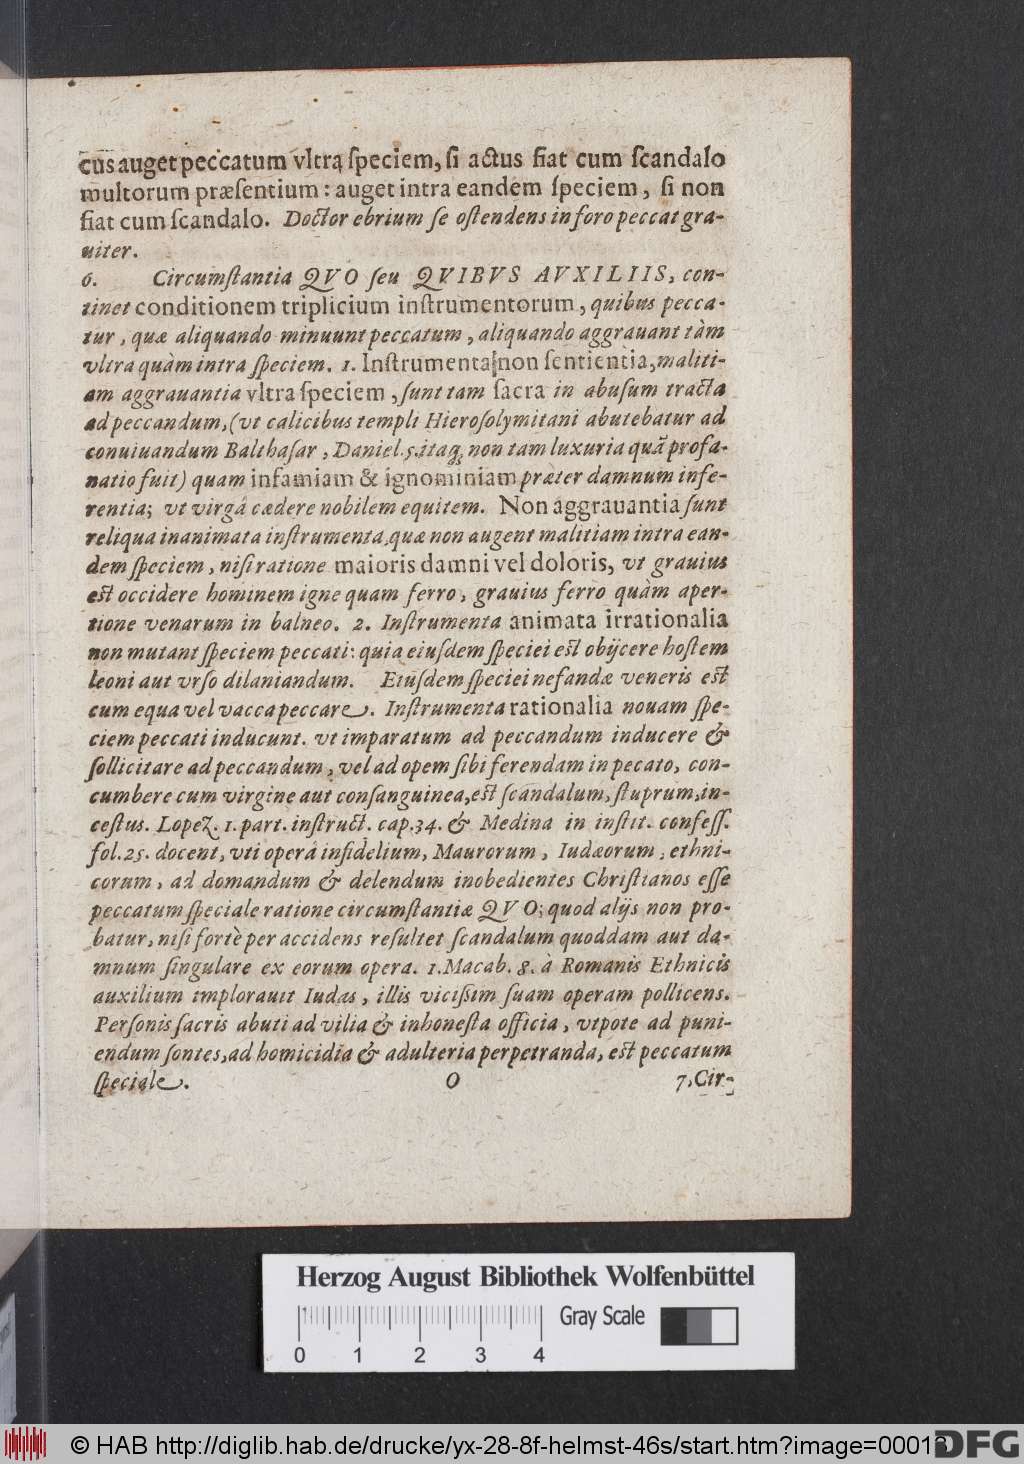 cus auget peccatum vltra ſpeciem, ſi actus fiat cum ſcandalo
multorum præſentium: auget intra eandem ſpeciem, ſi non
fiat cum ſcandalo. Doctor ebrium ſe oſtendens in foro peccat gra-
uiter.
6. Circumſtantia QVO ſeu QVIBVS AVXILIIS, con-
tinet conditionem triplicium inſtrumentorum, quibus pecca-
tur, quæ aliquando minuunt peccatum, aliquando aggrauant tàm
vltra quàm intra ſpeciem. 1. Inſtrumenta non ſentientia, maliti-
am aggrauantia vltra ſpeciem, ſunt tam ſacra in abuſum tracta
ad peccandum, (vt calicibus templi Hieroſolymitani abutebatur ad
conuiuandum Balthaſar, Daniel. 5. itaq; non tam luxuria quã profa-
natio fuit) quam infamiam & ignominiam præter damnum infe-
rentia; vt virgâ cædere nobilem equitem. Non aggrauantia ſunt
reliqua inanimata inſtrumenta, quæ non augent malitiam intra ean-
dem ſpeciem, niſi ratione maioris damni vel doloris, vt grauius
eſt occidere hominem igne quam ferro, grauius ferro quàm aper-
tione venarum in balneo. 2. Inſtrumenta animata irrationalia
non mutant ſpeciem peccati: quia eiuſdem ſpeciei eſt obijcere hoſtem
leoni aut vrſo dilaniandum. Eiuſdem ſpeciei nefandæ veneris eſt
cum equa vel vacca peccare. Inſtrumenta rationalia nouam ſpe-
ciem peccati inducunt. vt imparatum ad peccandum inducere &
ſollicitare ad peccandum, vel ad opem ſibi ferendam in pecato, con-
cumbere cum virgine aut conſanguinea, eſt ſcandalum, ſtuprum, in-
ceſtus. Lopez. 1. part. inſtruct. cap. 34. & Medina in inſtit. confeſſ.
fol. 25. docent, vti operâ infidelium, Maurorum, Iudæorum, ethni-
corum, ad domandum & delendum inobedientes Chriſtianos eſſe
peccatum ſpeciale ratione circumſtantiæ QVO; quod alijs non pro-
batur, niſi fortè per accidens reſultet ſcandalum quoddam aut da-
mnum ſingulare ex eorum opera. 1. Macab. 8. à Romanis Ethnicis
auxilium implorauit Iudas, illis viciſſim ſuam operam pollicens.
Perſonis ſacris abuti ad vilia & inhoneſta officia, vtpote ad puni-
endum ſontes, ad homicidia & adulteria perpetranda, eſt peccatum
ſpeciale. O 7. Cir-
Herzog August Bibliothek Wolfenbüttel
Gray Scale
0 1 2 3 4
© HAB http://diglib.hab.de/drucke/yx-28-8f-helmst-46s/start.htm?image=00013
DFG